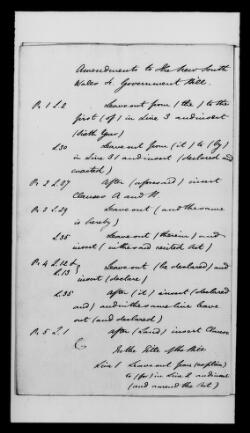 Amendments to the New South
Wales &c Government Bill.
Pr. 1 L 2 Leave out from (the) to the
first (of) in Line 3 and insert
(Sixth Year)
L30 Leave out from (it) to (by)
in Line 31 and insert (declared and
enacted)
Pr. 2 L27 After (aforesaid) insert
Clauses A and B.
Pr 3 L29 Leave out (and the same
is hereby)
L35 Leave out (therein) and
insert (in the said recited Act)
Pr. 4 L12 &
L13 Leave out (be declared) and
insert (declare)
L35 After (it) insert (declared
and) and in the same line leave
out (and declared)
Pr. 5 L1 After (Land) insert Clause
C
In the Title of the Bill
Line 1 Leave out from
to (for) in Line 2 and insert
(and amend the Act)